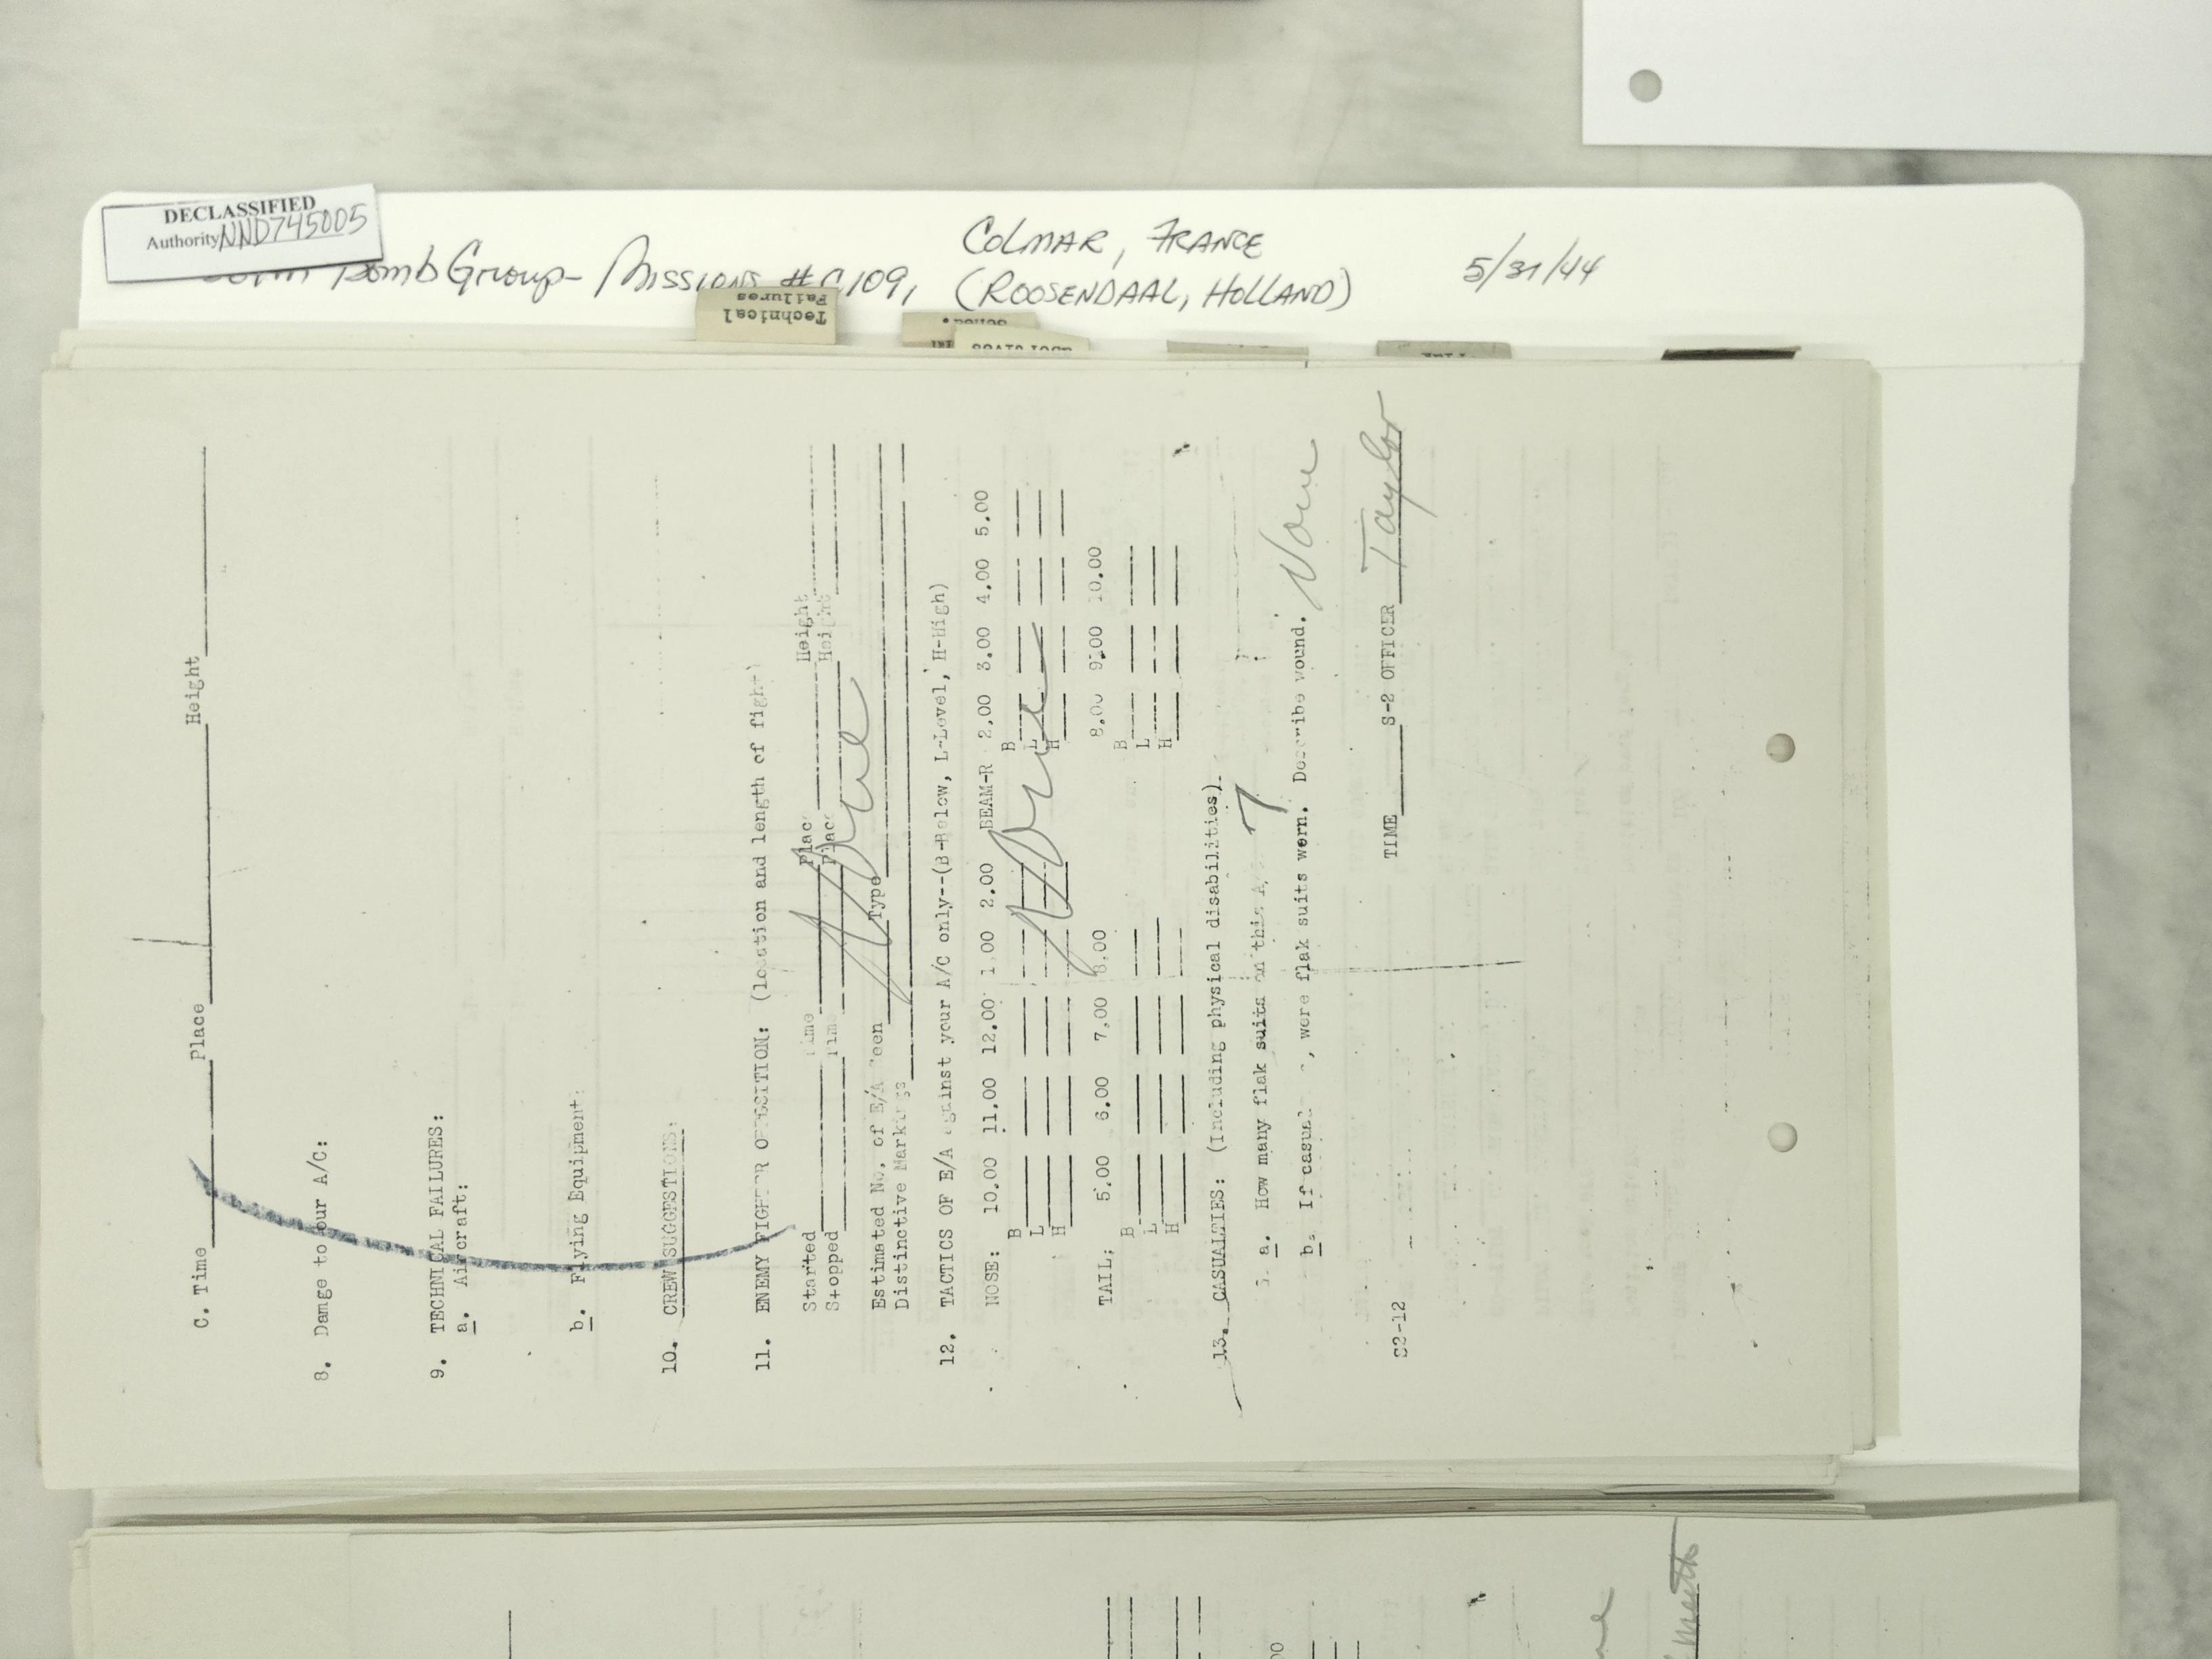 DECLASSIFIED
Authority NND745005
Bomb Group - Missions # 109,
COLMAR, FRANCE
(ROOSENDAAL, HOLLAND)
5/31/44
Technical
Failures
C. Time Place Height
8. Damage to your A/C:
9. TECHNICAL FAILURES:
a. Aircraft:
b. Flying Equipment:
10. CREW SUGGESTIONS:
11. ENEMY FIGHTER OPPOSITION: (location and length of fight)
Started Time Place Height
Stopped Time Place Height
None
Estimated No. of E/A Seen Type
Distinctive Markings
12. TACTICS OF E/A against your A/C only--(B-Below, L-Level, H-High)
NOSE: 10.00 11.00 12.00 1.00 2.00 BEAM-R 2.00 3.00 4.00 5.00
B B
L L
H H
None
TAIL: 5.00 6.00 7.00 8.00 8.00 9.00 10.00
B B
L L
H H
13. CASUALTIES: (Including physical disabilities).
a. How many flak suits on this A 7
b. If casual , were flak suits worn. Describe wound. None
TIME S-2 OFFICER Taylor
S2-12